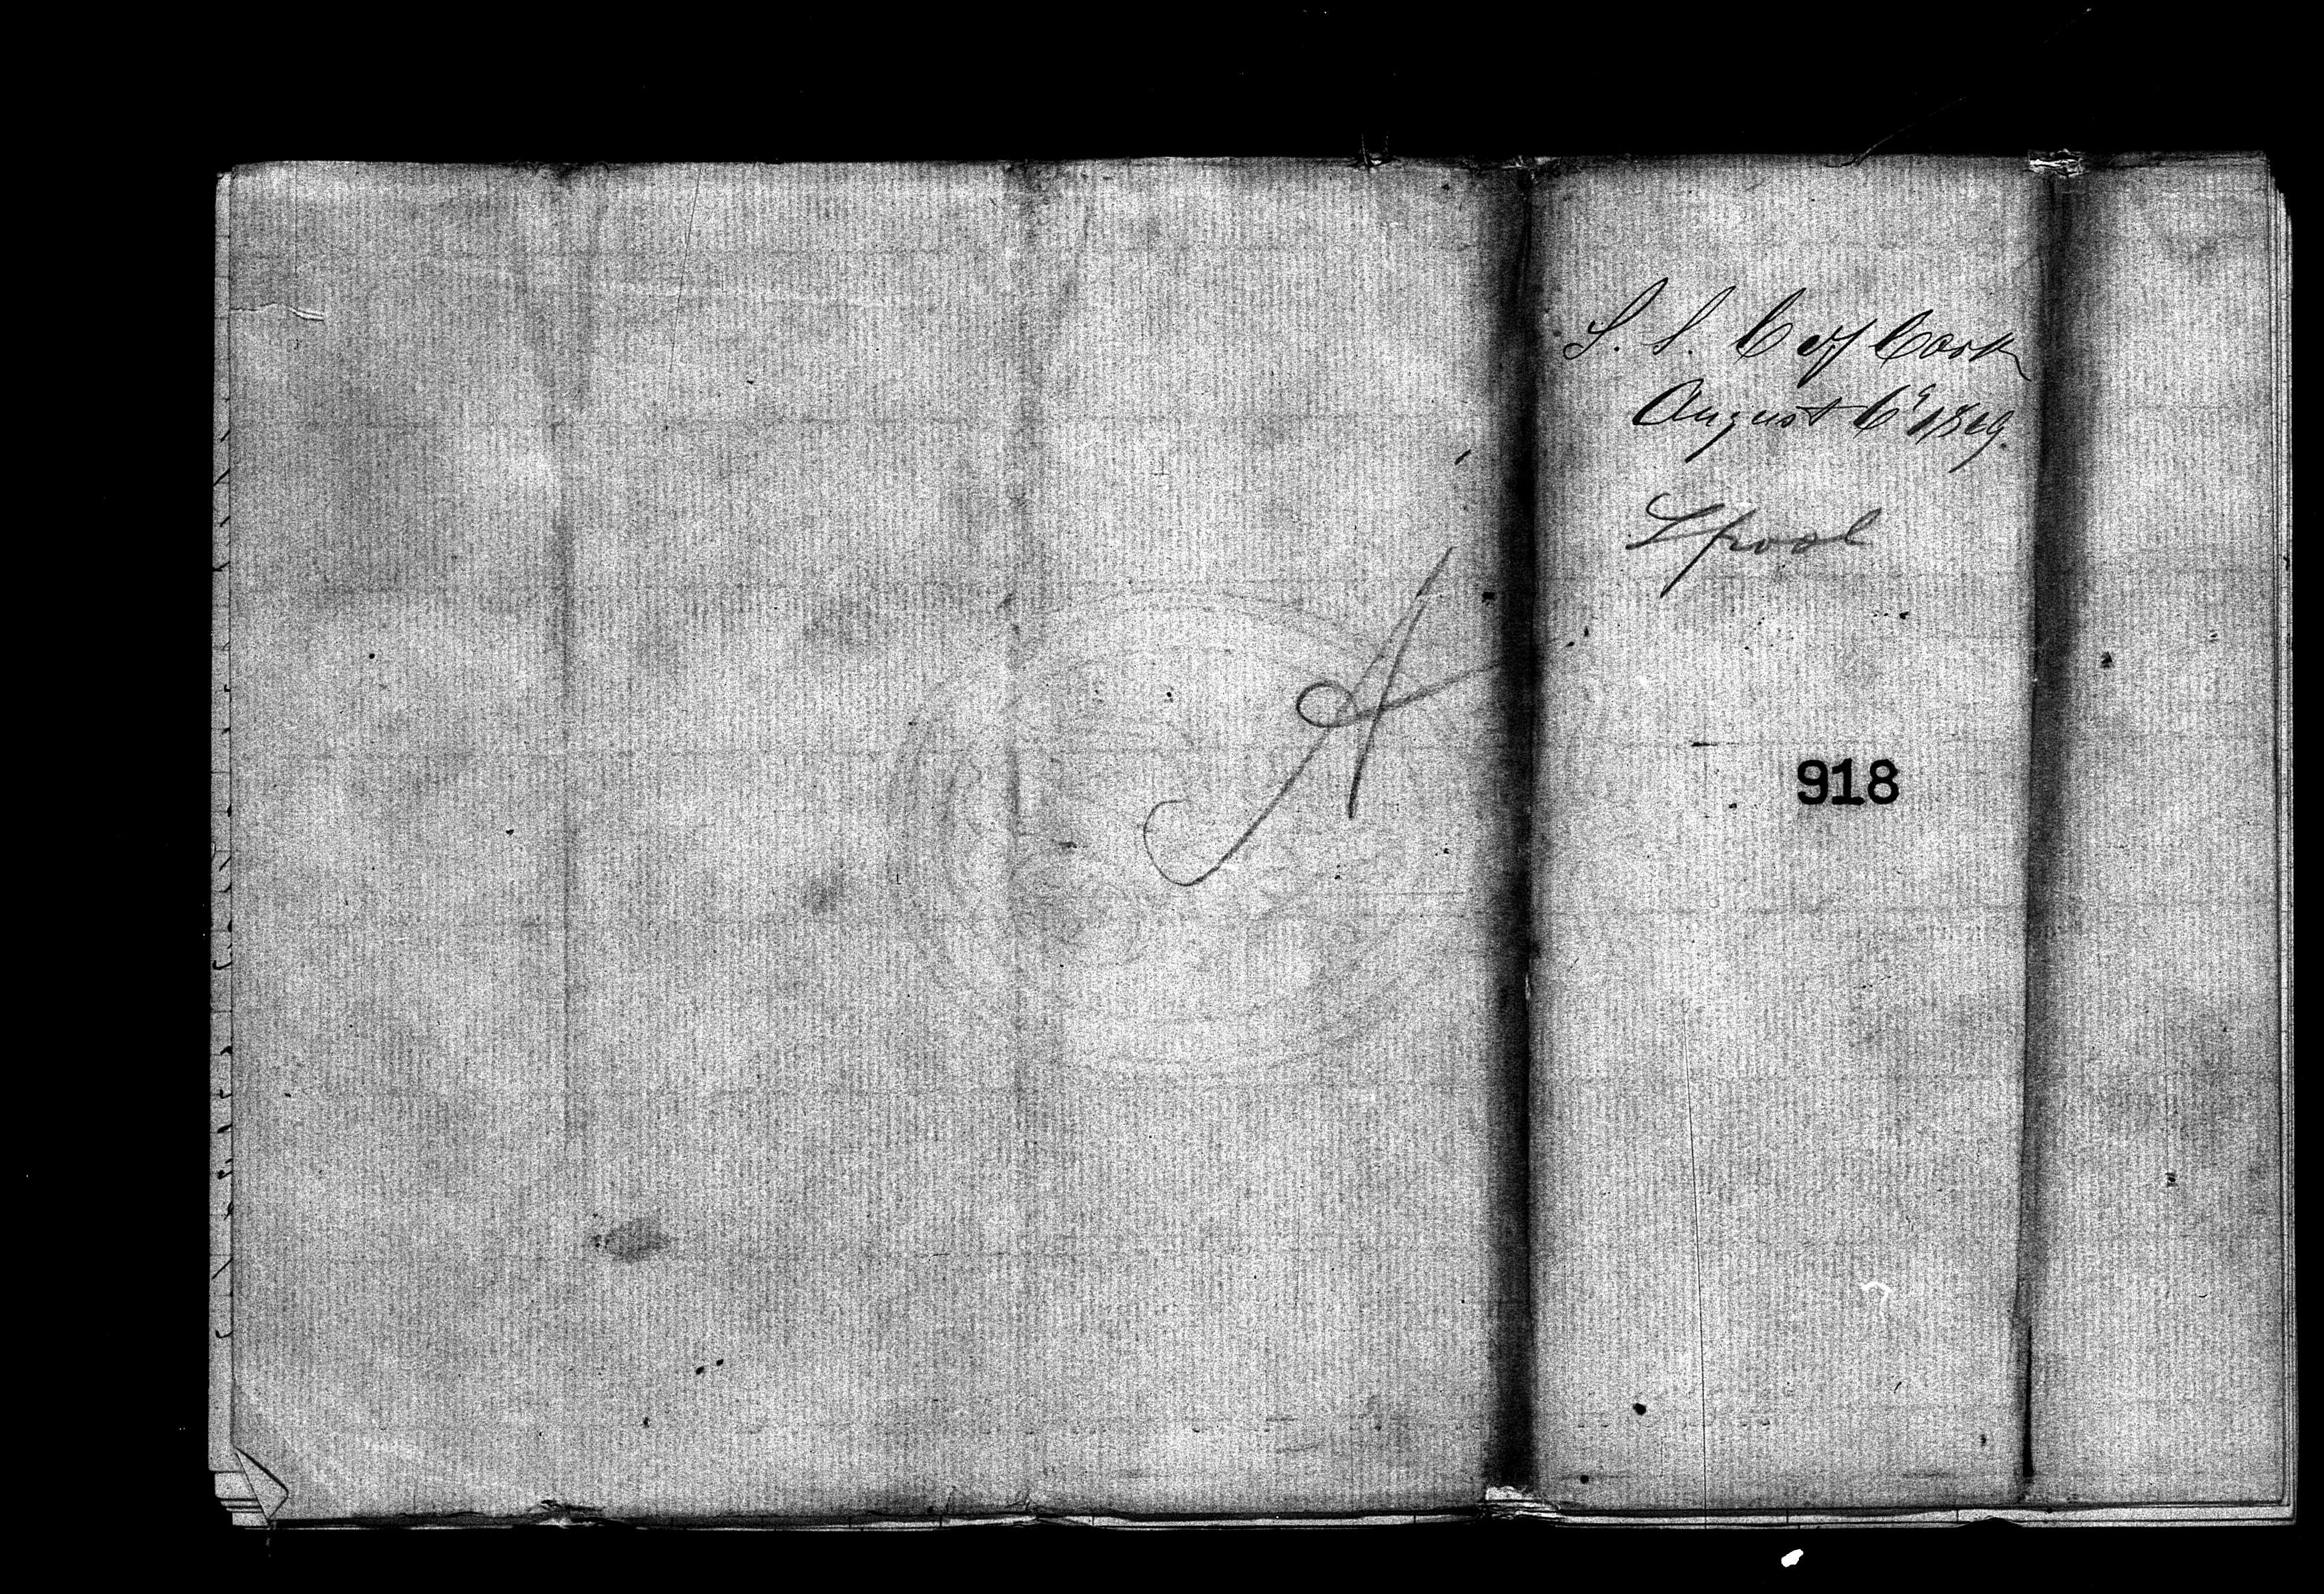 S. S. City Cork
August 6th 1869.
Lpool
A
918